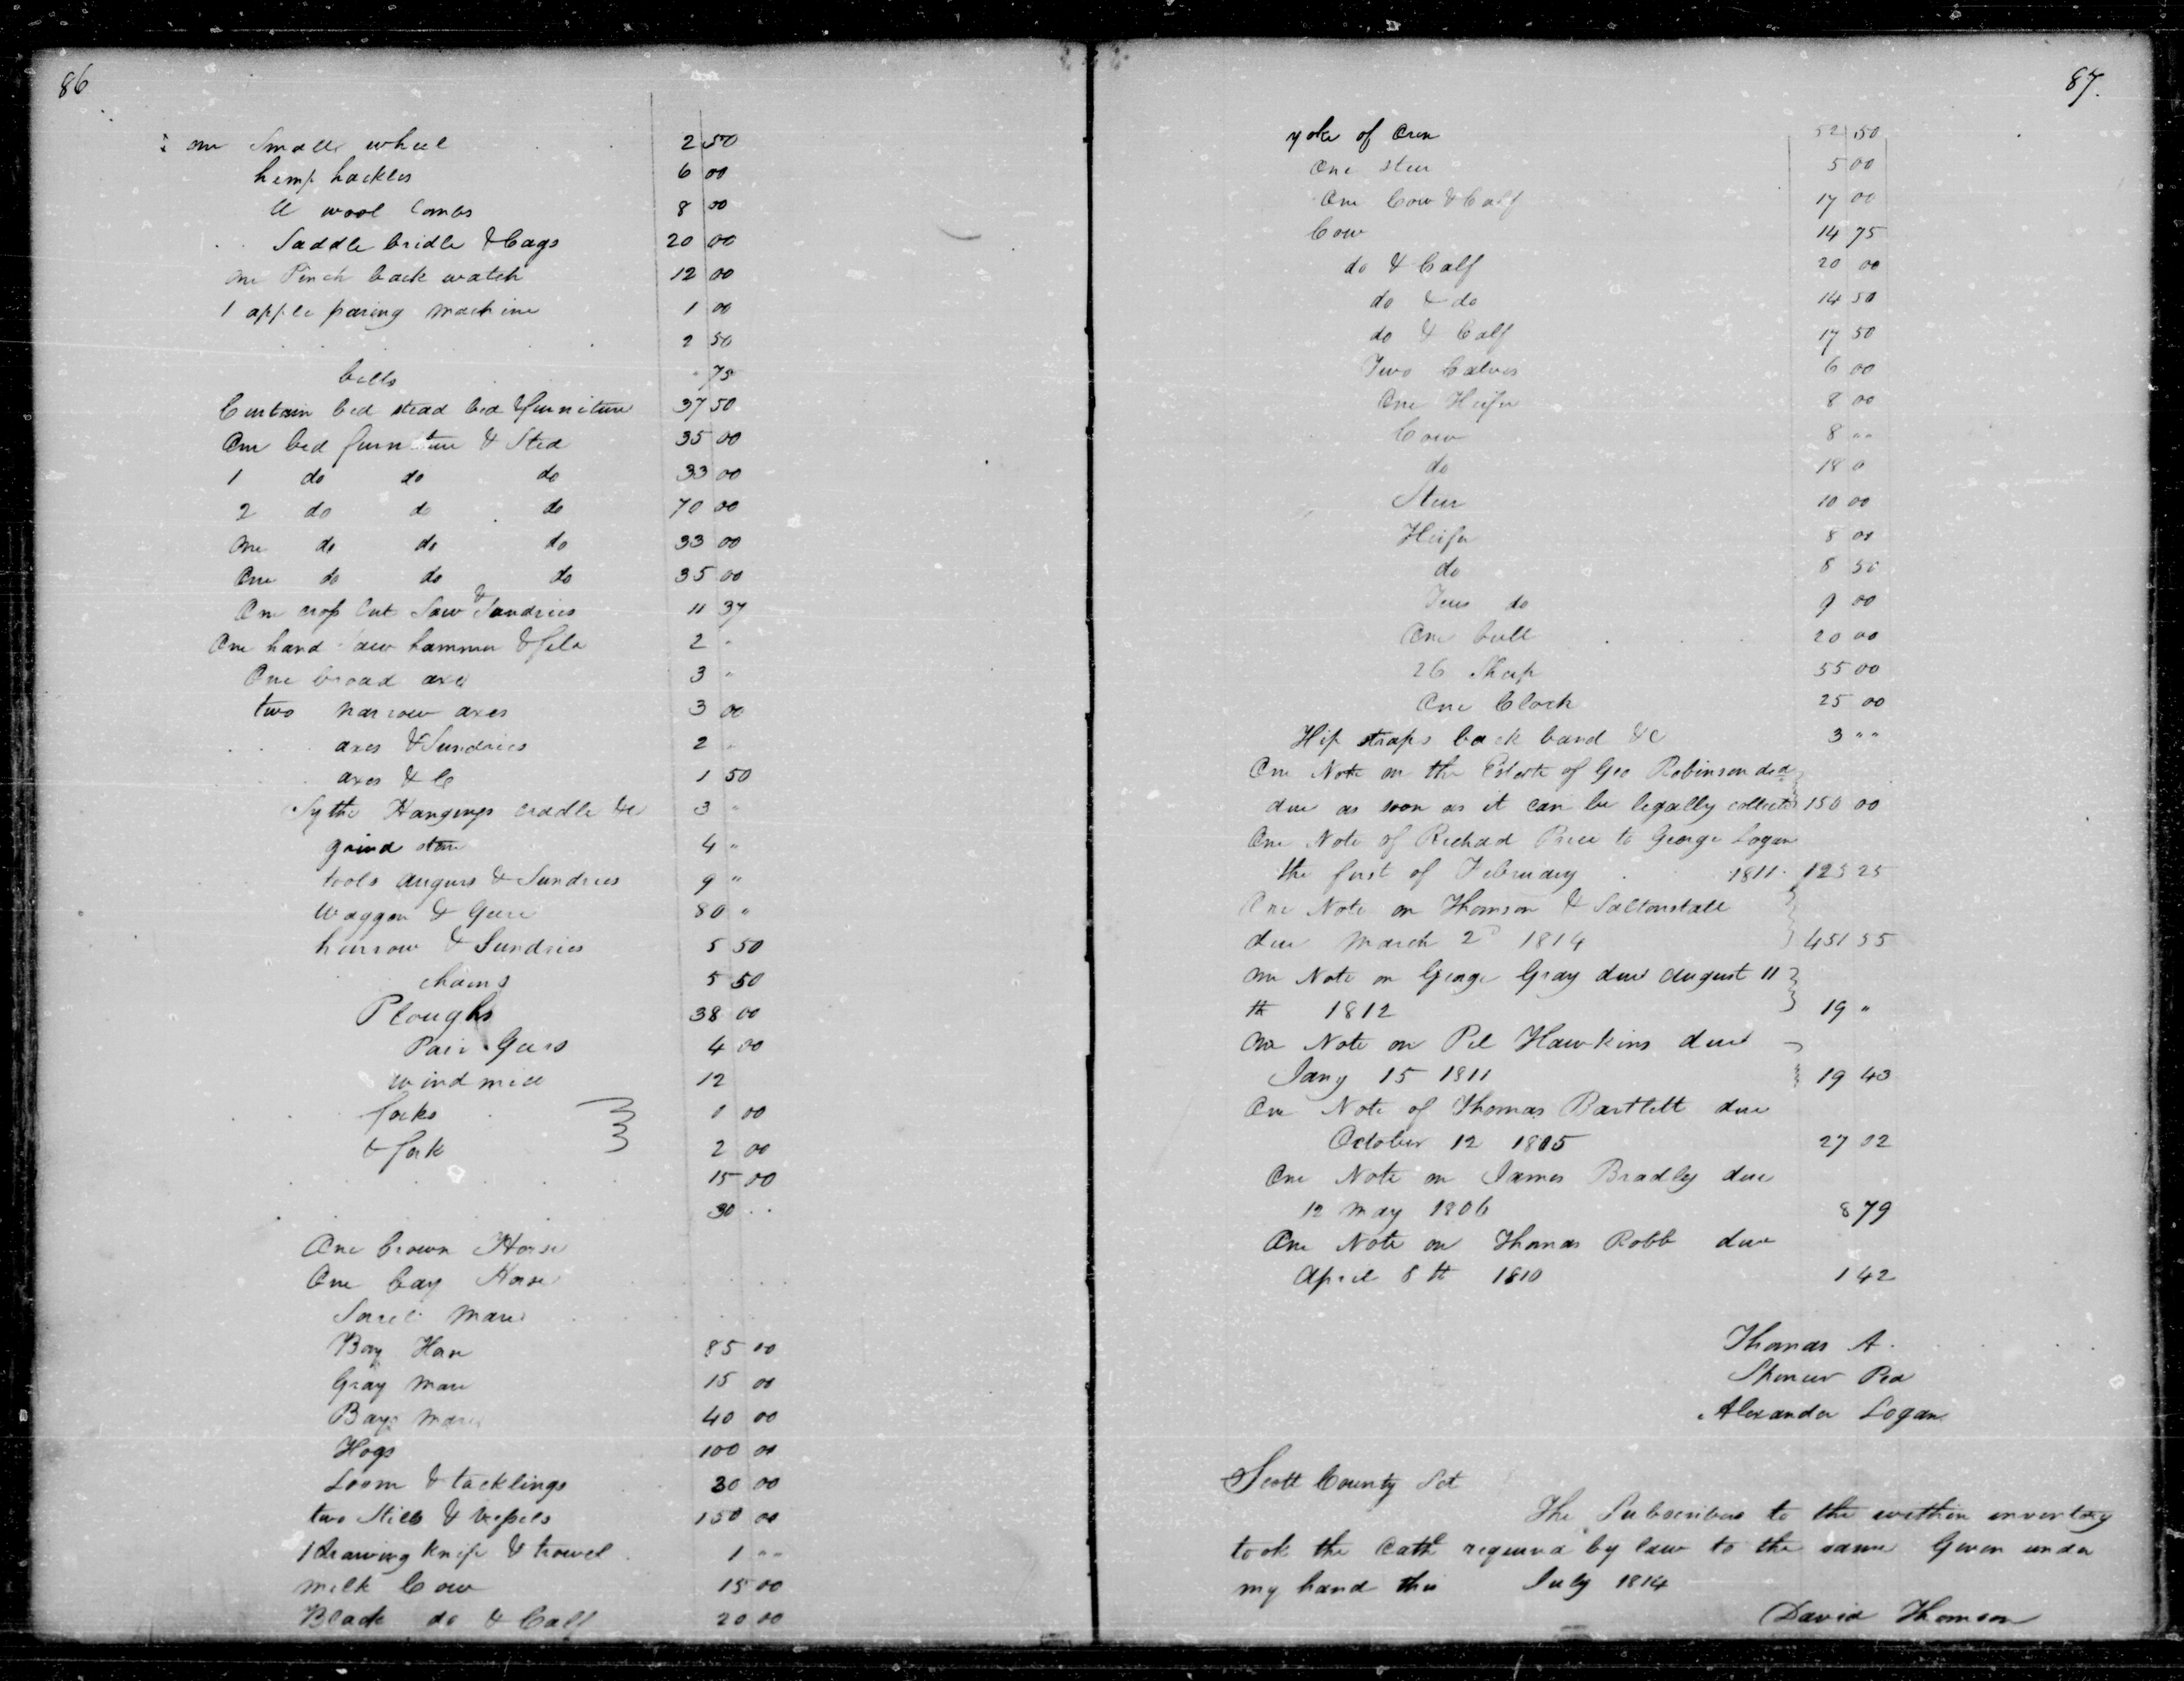 86
one Small wheel 2 50
hemp hackles 6 00
wool Combs 8 00
Saddle bridle & bags 20 00
one Pinch back watch 12 00
1 apple paring machine 1 00
2 50
bells 75
Curtain bed stead bed & furniture 37 50
One bed furniture & Sted 35 00
1 do do do 33 00
2 do do do 70 00
One do do do 33 00
One do do do 35 00
One crop Cut Saw & Sundries 11 37
One hand saw hammer & file 2 "
One broad axe 3 "
two narrow axes 3 00
axes & Sundries 2 "
axes & C 1 50
Sythe Hangings cradle &c 3 "
grind stone 4 "
tools augurs & Sundries 9 "
Waggon & Gere 80 "
harrow & Sundries 5 50
chains 5 50
Ploughs 38 00
Pair Gears 4 00
wind mill 12
forks 1 00
& fork 2 00
15 00
30
One brown Horse
One bay Horse
Sorel Mare
Bay Horse 85 00
Gray Mare 15 00
Bay Mare 40 00
Hogs 100 00
Loom & tacklings 30 00
two Stills & vessels 150 00
1 drawing knife & trowel 1 ""
milk Cow 15 00
Black do & Calf 20 00
87.
yoke of Oxen 52 50
One steer 5 00
One Cow & Calf 17 00
Cow 14 75
do & Calf 20 00
do & do 14 50
do & Calf 17 50
Two Calves 6 00
One Heifer 8 00
Cow 8 ""
do 18 0
Steer 10 00
Heifer 8 00
do 8 50
Two do 9 00
One bull 20 00
26 Sheep 55 00
One Clock 25 00
Hip straps back band &C 3 ""
One Note on the Estate of Geo Robinson decd
due as soon as it can be legally collected 150 00
One Note of Richard Price to George Logan
the first of February 1811. 125 25
One Note on Thomson & Saltonstall
due March 2d 1814 451 55
One Note on George Gray due August 11
th 1812 19 "
One Note on Hawkins due
Jany 15 1811 19 43
One Note of Thomas Bartlett due
October 12 1805 27 02
One Note on James Bradley due
12 May 1806 8 79
One Note on Thomas Robb due
April 8th 1810 1 42
Thomas A.
Alexander Logan
Scott County Sct
The Subscribers to the within inventory
took the Oath required by law to the same Given under
my hand this July 1814
David Thomson